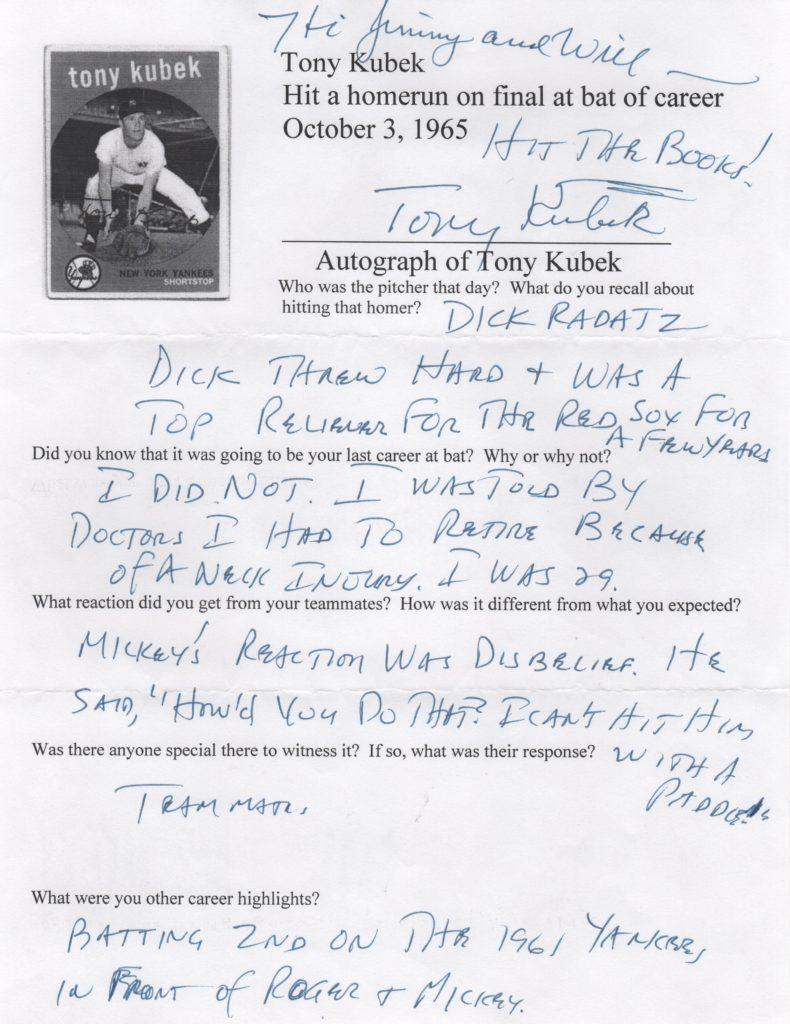 Hi Jimmy and Will
tony kubek
Tony Kubek
Hit a homerun on final at bat of career
October 3, 1965
HIT THE BOOKS!
Tony Kubek
NEW YORK YANKEES
SHORTSTOP
Autograph of Tony Kubek
Who was the pitcher that day? What do you recall about
hitting that homer? DICK RADATZ
DICK THREW HARD + WAS A
TOP RELIEVER FOR THE RED SOX FOR
A FEW YEARS
Did you know that it was going to be your last career at bat? Why or why not?
I DID NOT. I WAS TOLD BY
DOCTORS I HAD TO RETIRE BECAUSE
OF A NECK INJURY. I WAS 29.
What reaction did you get from your teammates? How was it different from what you expected?
MICKEY'S REACTION WAS DISBELIEF. HE
SAID, "HOW'D YOU DO THAT? I CANT HIT HIM
WITH A
PADDLE!"
Was there anyone special there to witness it? If so, what was their response?
TEAMMATES.
What were you other career highlights?
BATTING 2ND ON THE 1961 YANKEES
IN FRONT OF ROGER + MICKEY.